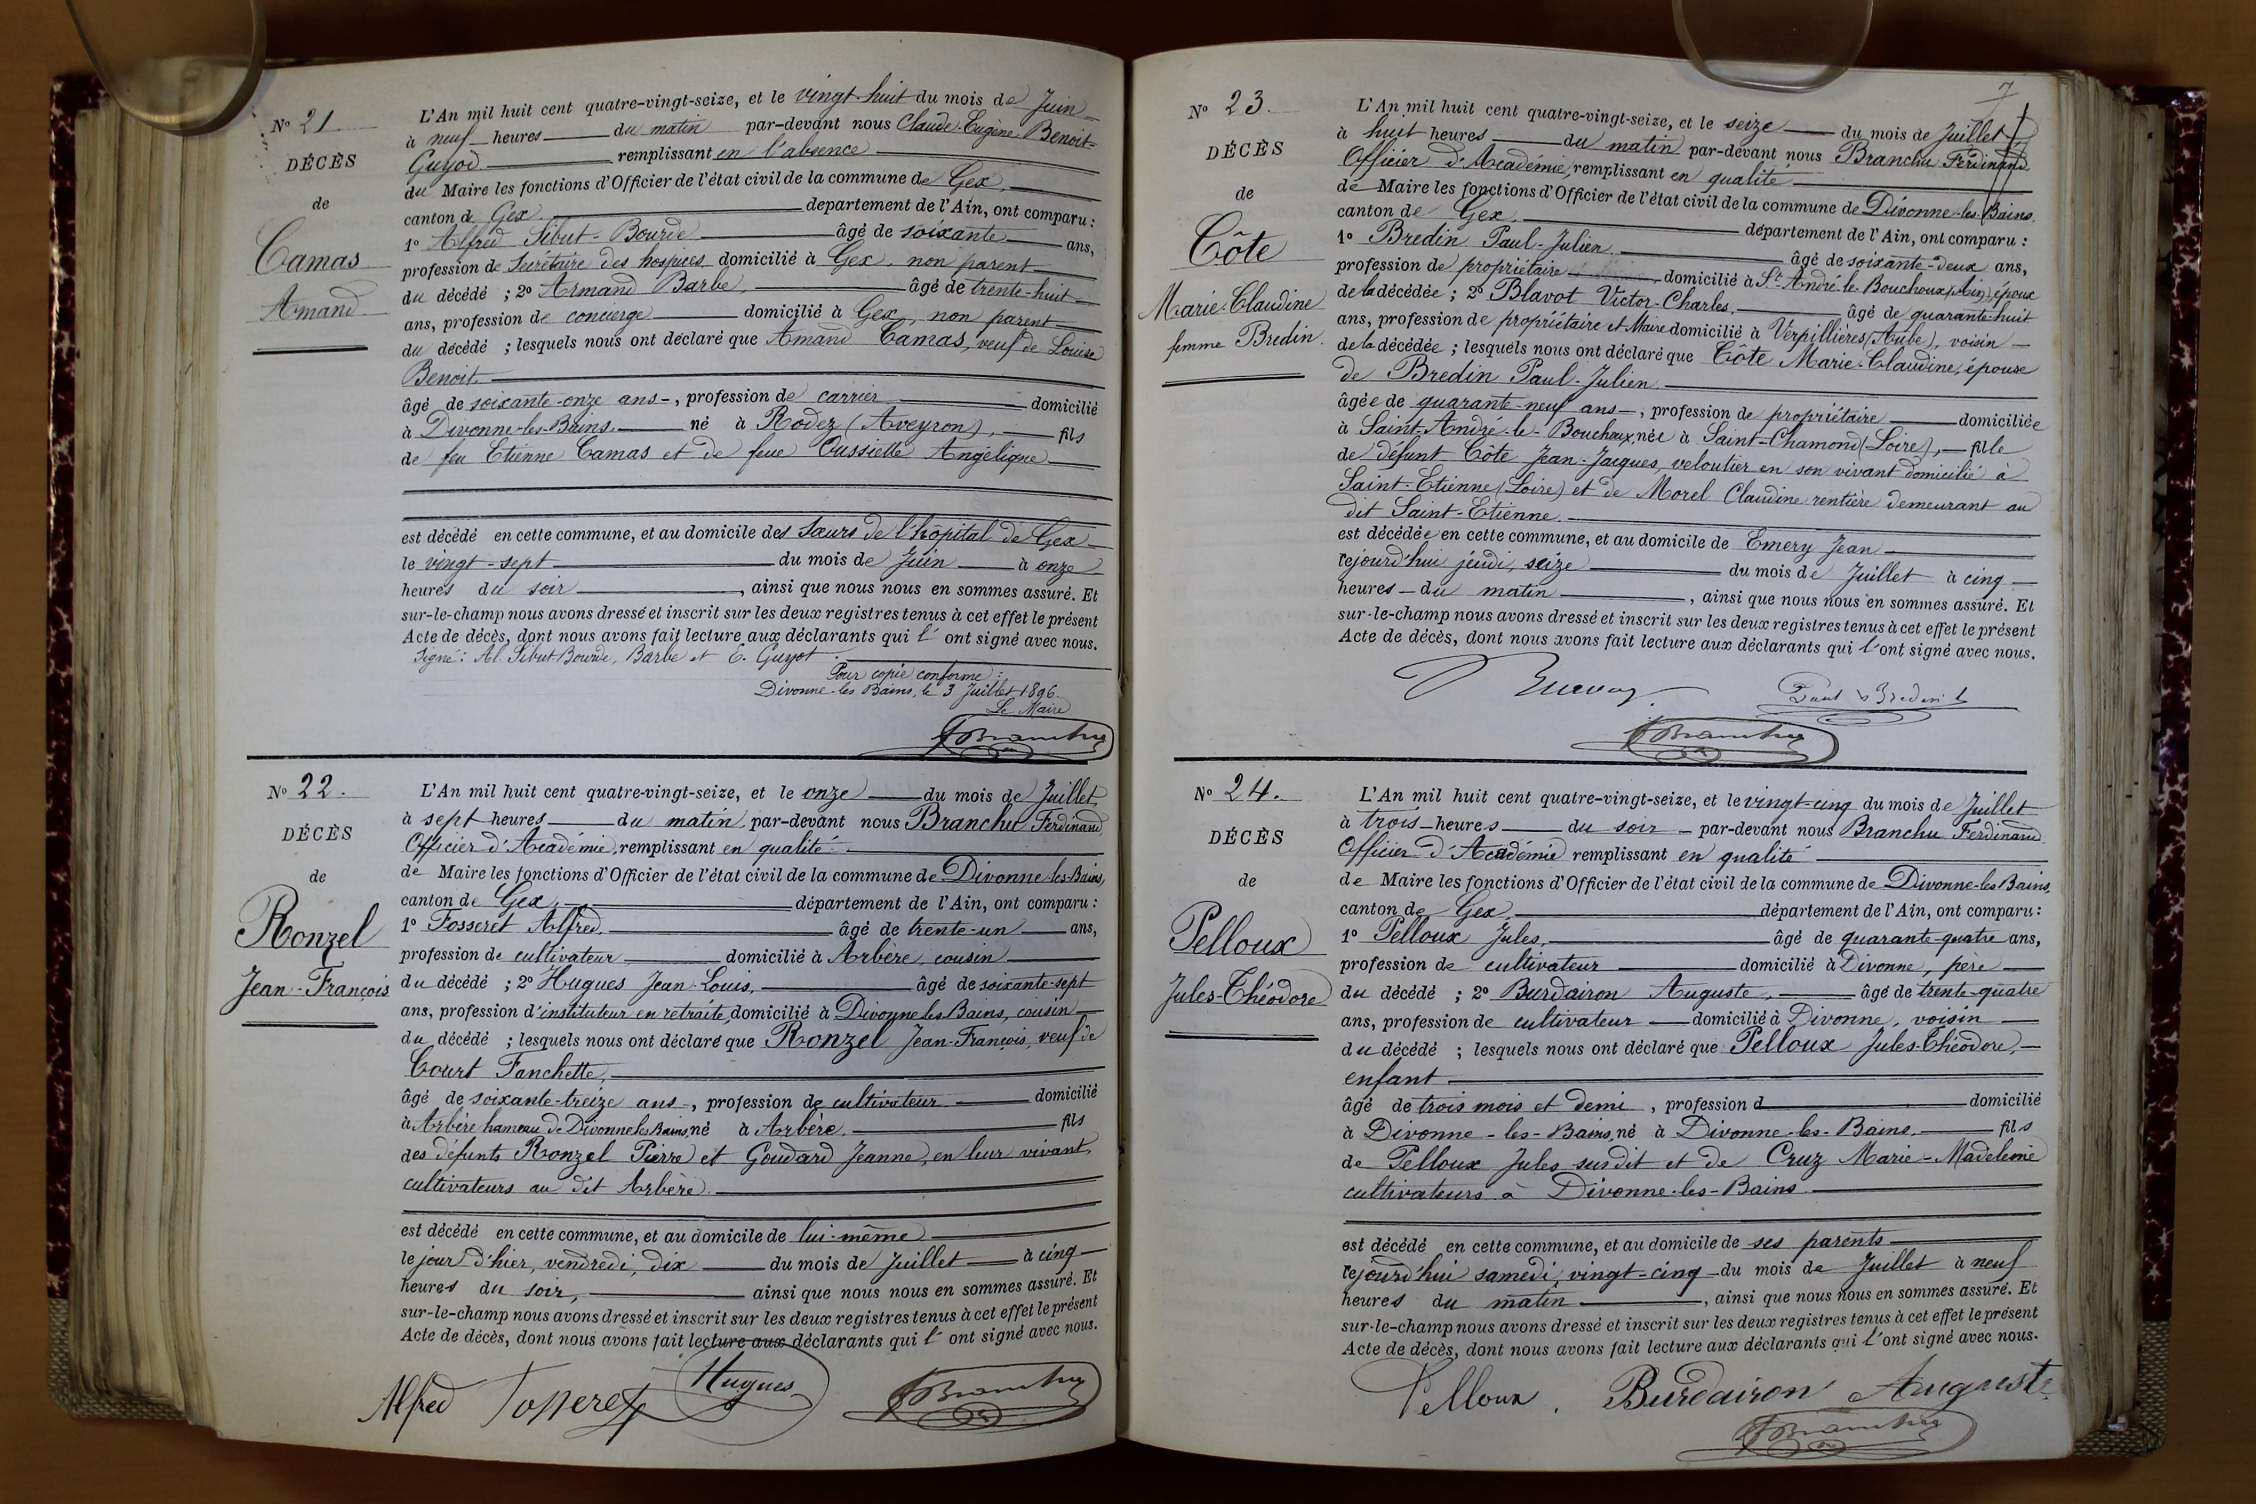 No 21.
DÉCÈS
de
Camas
Amand
L'An mil huit cent quatre-vingt-seize, et le vingt-huit du mois de Juin
à neuf heures du matin par-devant nous Claude-Eugène Benoit-
Guyod remplissant en l'absence
du Maire les fonctions d'Officier de l'état civil de la commune de Gex,
canton de Gex. departement de l'Ain, ont comparu :
1o Alfred Sibut-Bourde âgé de soixante ans,
profession de Secrétaire des hospices domicilié à Gex, non parent
du décédé ; 2o Armand Barbe, âgé de trente-huit
ans, profession de concierge domicilié à Gex, non parent
du décédé ; lesquels nous ont déclaré que Amand Camas, veuf de Louise
Benoit.
âgé de soixante-onze ans, profession de carrier domicilié
à Divonne-les-Bains. né à Rodez (Aveyron), fils
de feu Etienne Camas et de feue Oussielle Angélique
est décédé en cette commune, et au domicile des Sœurs de l'hôpital de Gex
le vingt-sept du mois de Juin à onze
heures du soir, ainsi que nous nous en sommes assuré. Et
sur-le-champ nous avons dressé et inscrit sur les deux registres tenus à cet effet le présent
Acte de décès, dont nous avons fait lecture aux déclarants qui l' ont signé avec nous.
Signé : Al. Sibut Bourde, Barbe et E. Guyot.
Pour copie conforme :
Divonne-les Bains, le 3 Juillet 1896.
Le Maire
FBranchu
No 22.
DÉCÈS
de
Ronzel
Jean-François
L'An mil huit cent quatre-vingt-seize, et le onze du mois de Juillet
à sept heures du matin par-devant nous Branchu Ferdinand
Officier d'Académie, remplissant en qualité
de Maire les fonctions d'Officier de l'état civil de la commune de Divonne-les-Bains,
canton de Gex, département de l'Ain, ont comparu :
1o Fosseret Alfred. âgé de trente-un ans,
profession de cultivateur domicilié à Arbère, cousin
du décédé ; 2o Hugues Jean-Louis, âgé de soixante-sept
ans, profession d'instituteur en retraite, domicilié à Divonne les Bains, cousin
du décédé ; lesquels nous ont déclaré que Ronzel Jean-François, veuf de
Court Fanchette,
âgé de soixante-treize ans, profession de cultivateur domicilié
à Arbère hameau de Divonne les Bains, né à Arbère. fils
des défunts Ronzel Pierre et Goudard Jeanne, en leur vivant,
cultivateurs au dit Arbère.
est décédé en cette commune, et au domicile de lui-même
le jour d'hier, vendredi, dix du mois de Juillet à cinq
heures du soir, ainsi que nous nous en sommes assuré. Et
sur-le-champ nous avons dressé et inscrit sur les deux registres tenus à cet effet le présent
Acte de décès, dont nous avons fait lecture aux déclarants qui l' ont signé avec nous.
Alfred Fosseret Hugues FBranchu
7
No 23.
DÉCÈS
de
Côte
Marie-Claudine
femme Bredin.
L'An mil huit cent quatre-vingt-seize, et le seize du mois de Juillet
à huit heures du matin par-devant nous Branchu Ferdinand
Officier d'Académie, remplissant en qualité
de Maire les fonctions d'Officier de l'état civil de la commune de Divonne-les-Bains,
canton de Gex. département de l'Ain, ont comparu :
1o Bredin Paul-Julien âgé de soixante-deux ans,
profession de propriétaire domicilié à St André-le-Bouchoux, (Ain), époux
de la décédée ; 2o Blavot Victor-Charles. âgé de quarante-huit
ans, profession de propriétaire et Maire domicilié à Verpillières (Aube), voisin
de la décédée ; lesquels nous ont déclaré que Côte Marie-Claudine, épouse
de Bredin Paul-Julien.
âgée de quarante-neuf ans, profession de propriétaire domiciliée
à Saint-André-le-Bouchoux, née à Saint-Chamond (Loire), fille
de défunt Côte Jean-Jacques, veloutier en son vivant domicilié à
Saint-Etienne (Loire) et de Morel Claudine rentière demeurant au
dit Saint-Etienne.
est décédée en cette commune, et au domicile de Emery Jean
cejourd'hui jeudi, seize du mois de Juillet à cinq
heures du matin, ainsi que nous nous en sommes assuré. Et
sur-le-champ nous avons dressé et inscrit sur les deux registres tenus à cet effet le présent
Acte de décès, dont nous avons fait lecture aux déclarants qui l'ont signé avec nous.
Paul Bredin
FBranchu
No 24.
DÉCÈS
de
Pelloux
Jules-Théodore
L'An mil huit cent quatre-vingt-seize, et le vingt-cinq du mois de Juillet
à trois heures du soir par-devant nous Branchu Ferdinand
Officier d'Académie remplissant en qualité
de Maire les fonctions d'Officier de l'état civil de la commune de Divonne-les Bains,
canton de Gex, département de l'Ain, ont comparu :
1o Pelloux Jules, âgé de quarante-quatre ans,
profession de cultivateur domicilié à Divonne, père
du décédé ; 2o Burdairon Auguste, âgé de trente-quatre
ans, profession de cultivateur domicilié à Divonne, voisin
du décédé ; lesquels nous ont déclaré que Pelloux Jules-Théodore,
enfant
âgé de trois mois et demi, profession d domicilié
à Divonne-les-Bains, né à Divonne-les-Bains. fils
de Pelloux Jules susdit et de Cruz Marie-Madeleine
cultivateurs à Divonne-les-Bains.
est décédé en cette commune, et au domicile de ses parents
cejourd'hui samedi, vingt-cinq du mois de Juillet à neuf
heures du matin, ainsi que nous nous en sommes assuré. Et
sur-le-champ nous avons dressé et inscrit sur les deux registres tenus à cet effet le présent
Acte de décès, dont nous avons fait lecture aux déclarants qui l'ont signé avec nous.
Pelloux. Burdairon Auguste
FBranchu